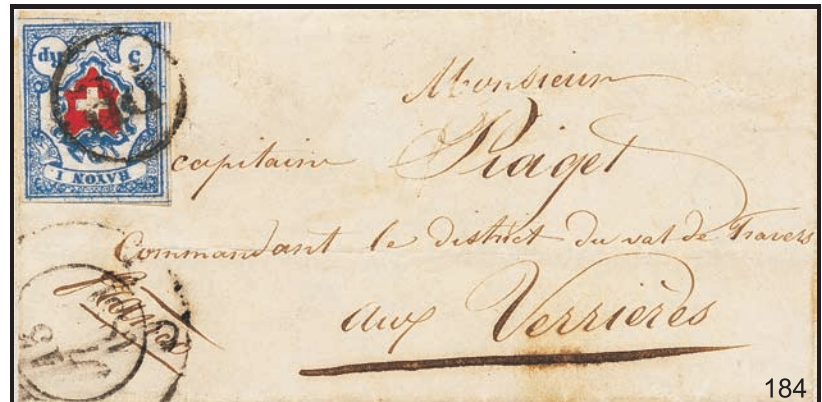 5 Rp.
RAYON I.
Monsieur
capitaine Piaget
Commandant le district du val de Travers
franco
aux Verrières
184